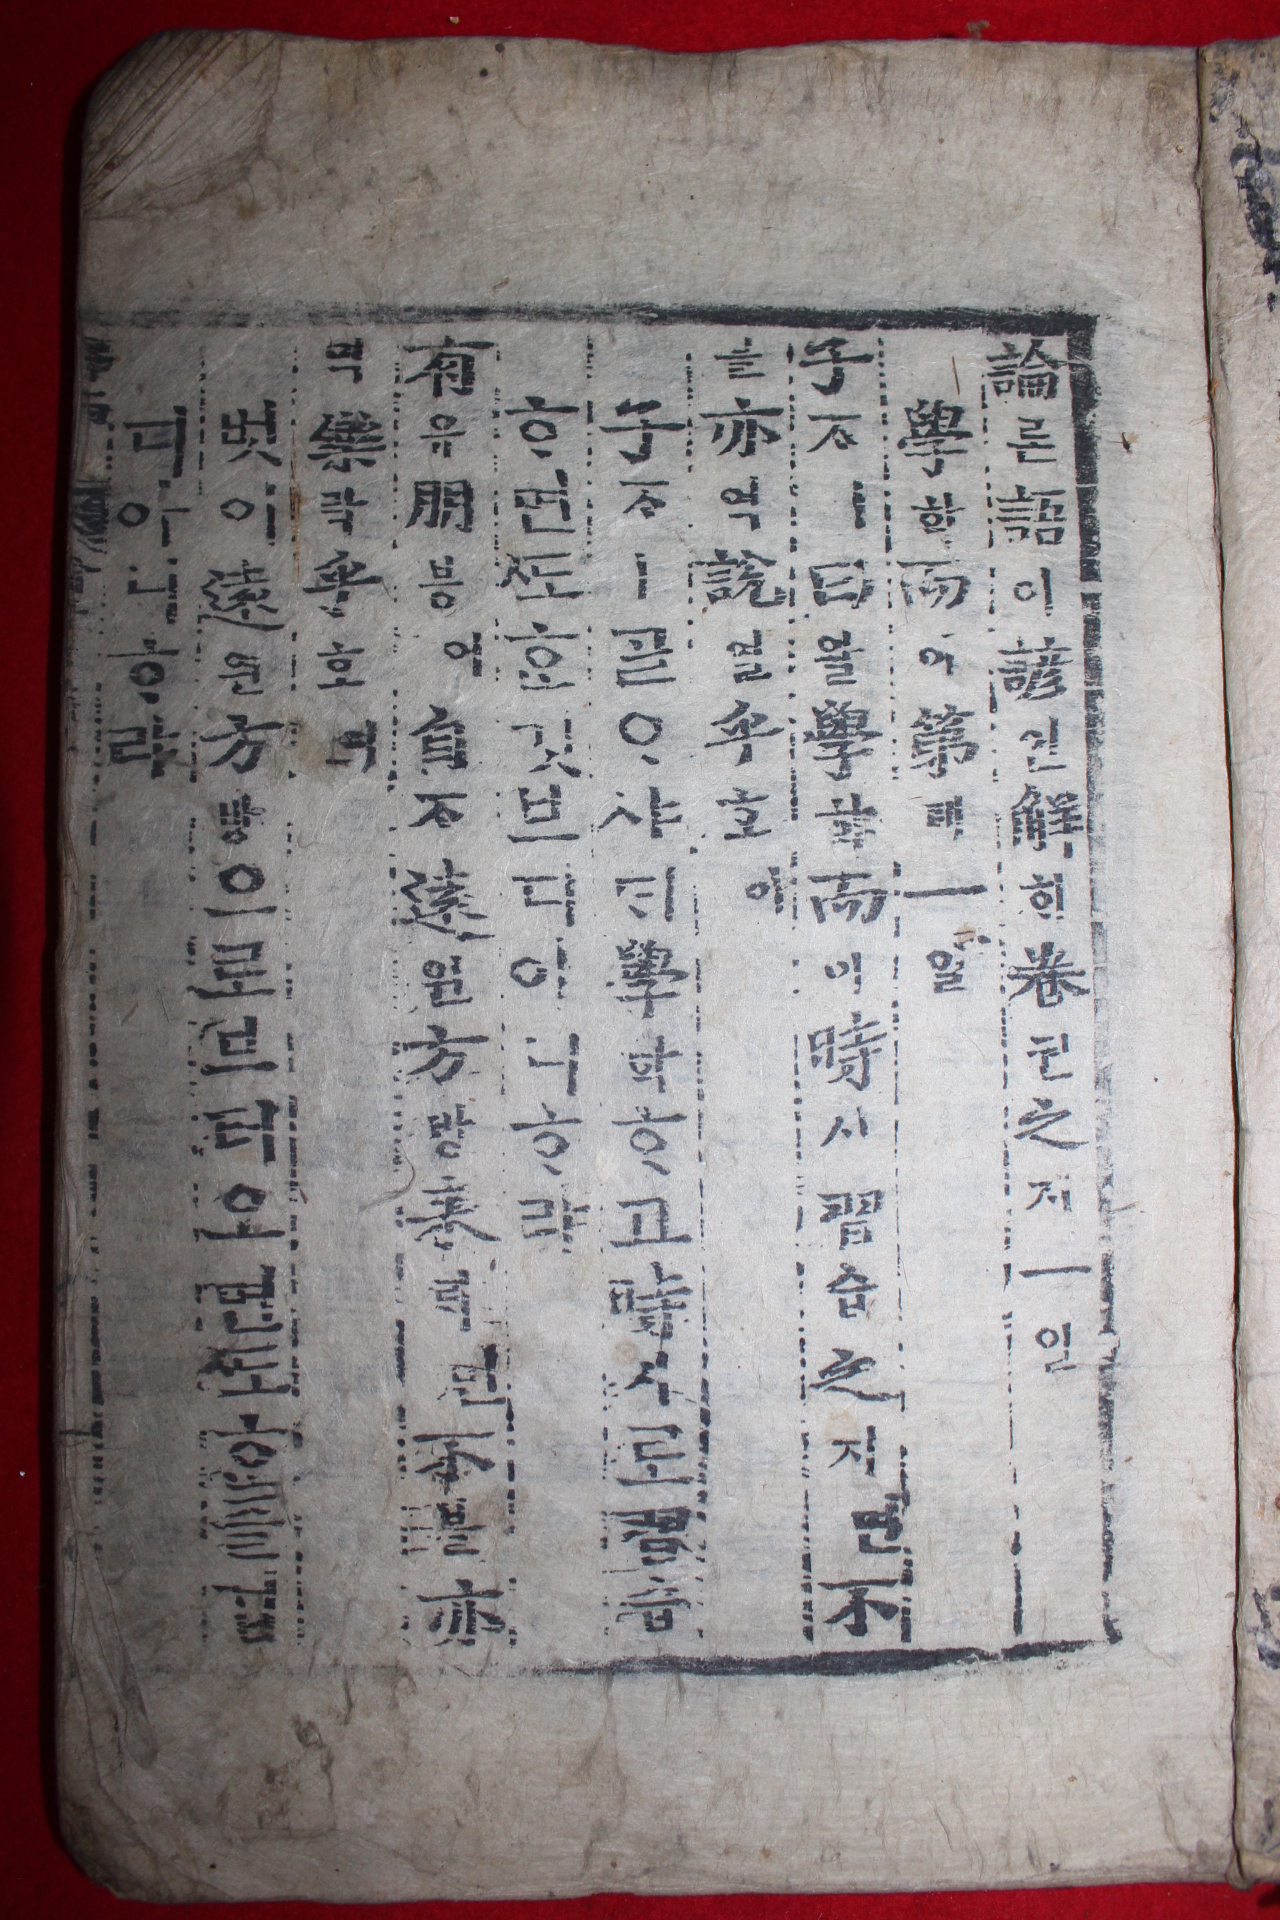 論론語어諺언解ᄒᆡ卷권之지一일
學학而이第뎨一일
子ᄌᆞㅣ曰왈學학而이時시習습之지면不
블亦역說열乎호아
子ᄌᆞㅣᄀᆞᆯᄋᆞ샤ᄃᆡ學학ᄒᆞ고時시로習습
ᄒᆞ면ᄯᅩᄒᆞᆫ깃브디아니ᄒᆞ랴
有유朋븡이自ᄌᆞ遠원方방來ᄅᆡ면不블亦
역樂락乎호아
벋이遠원方방으로브터오면ᄯᅩᄒᆞᆫ즐
겁디아니ᄒᆞ랴